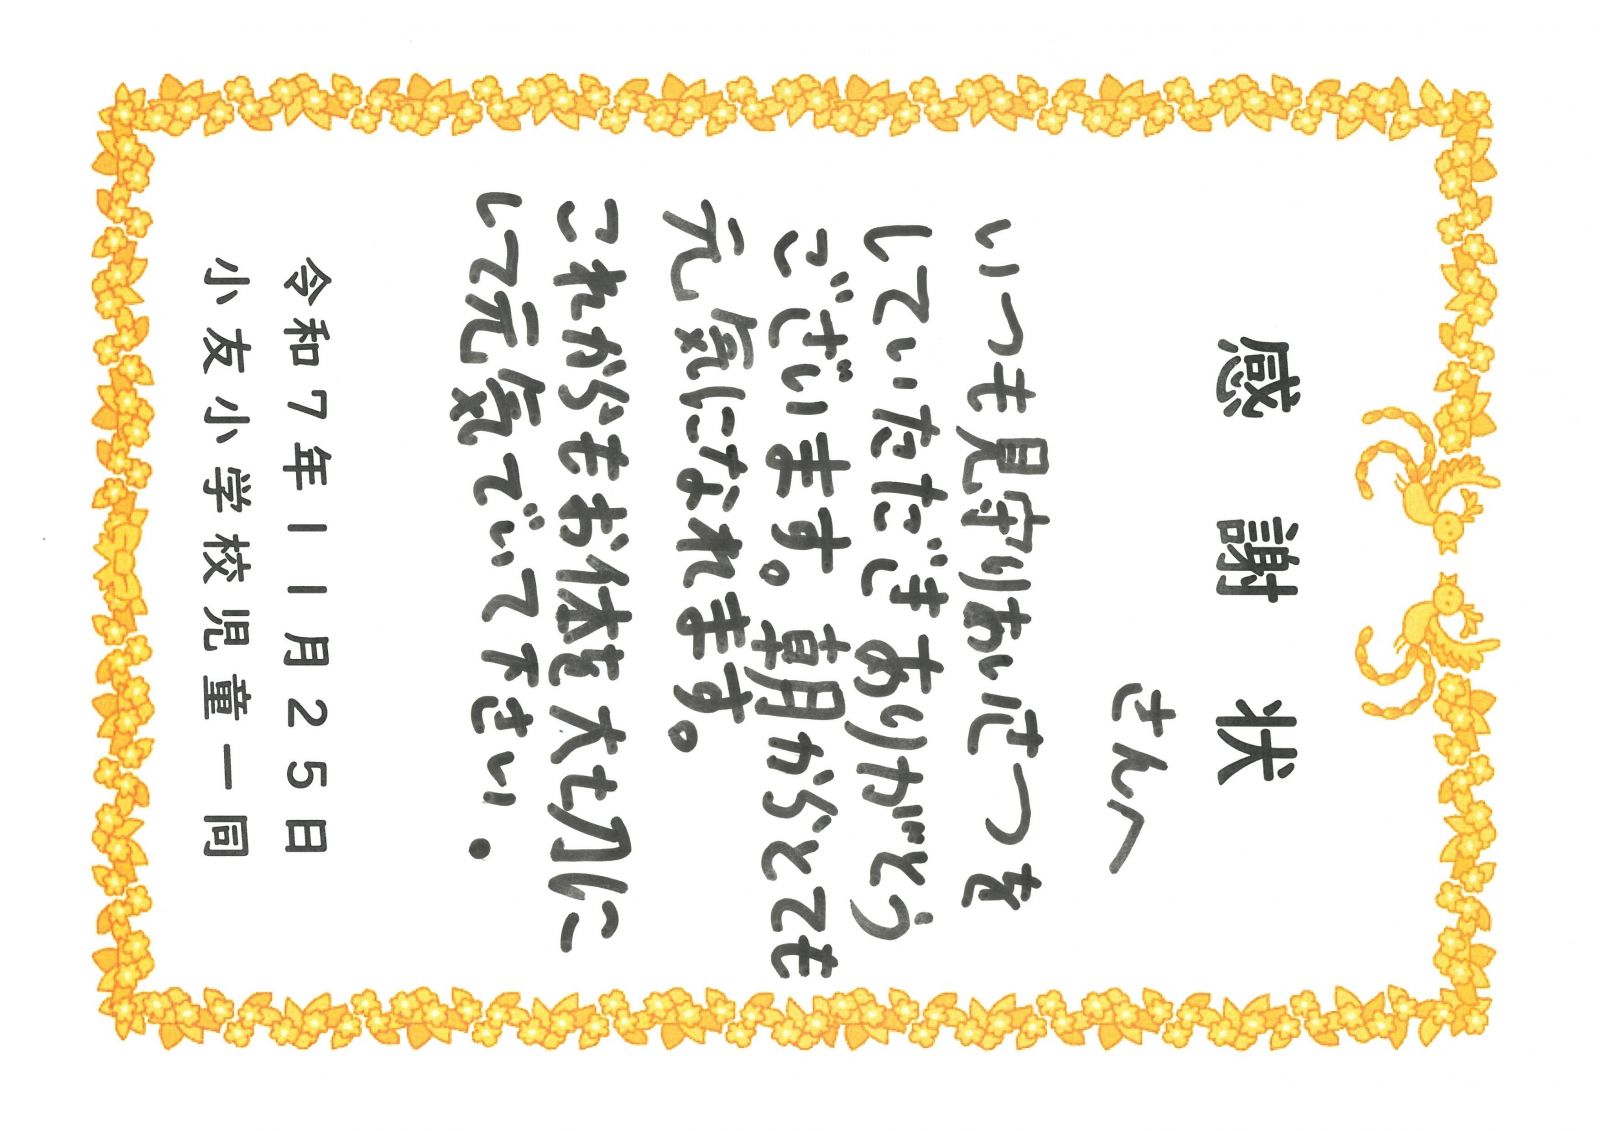 感謝状
さんへ
いつも見守りあいさつを
していただきありがとう
ございます。朝からとても
元気になれます。
これからもお体を大切に
して元気でいて下さい。
令和７年１１月２５日
小友小学校児童一同